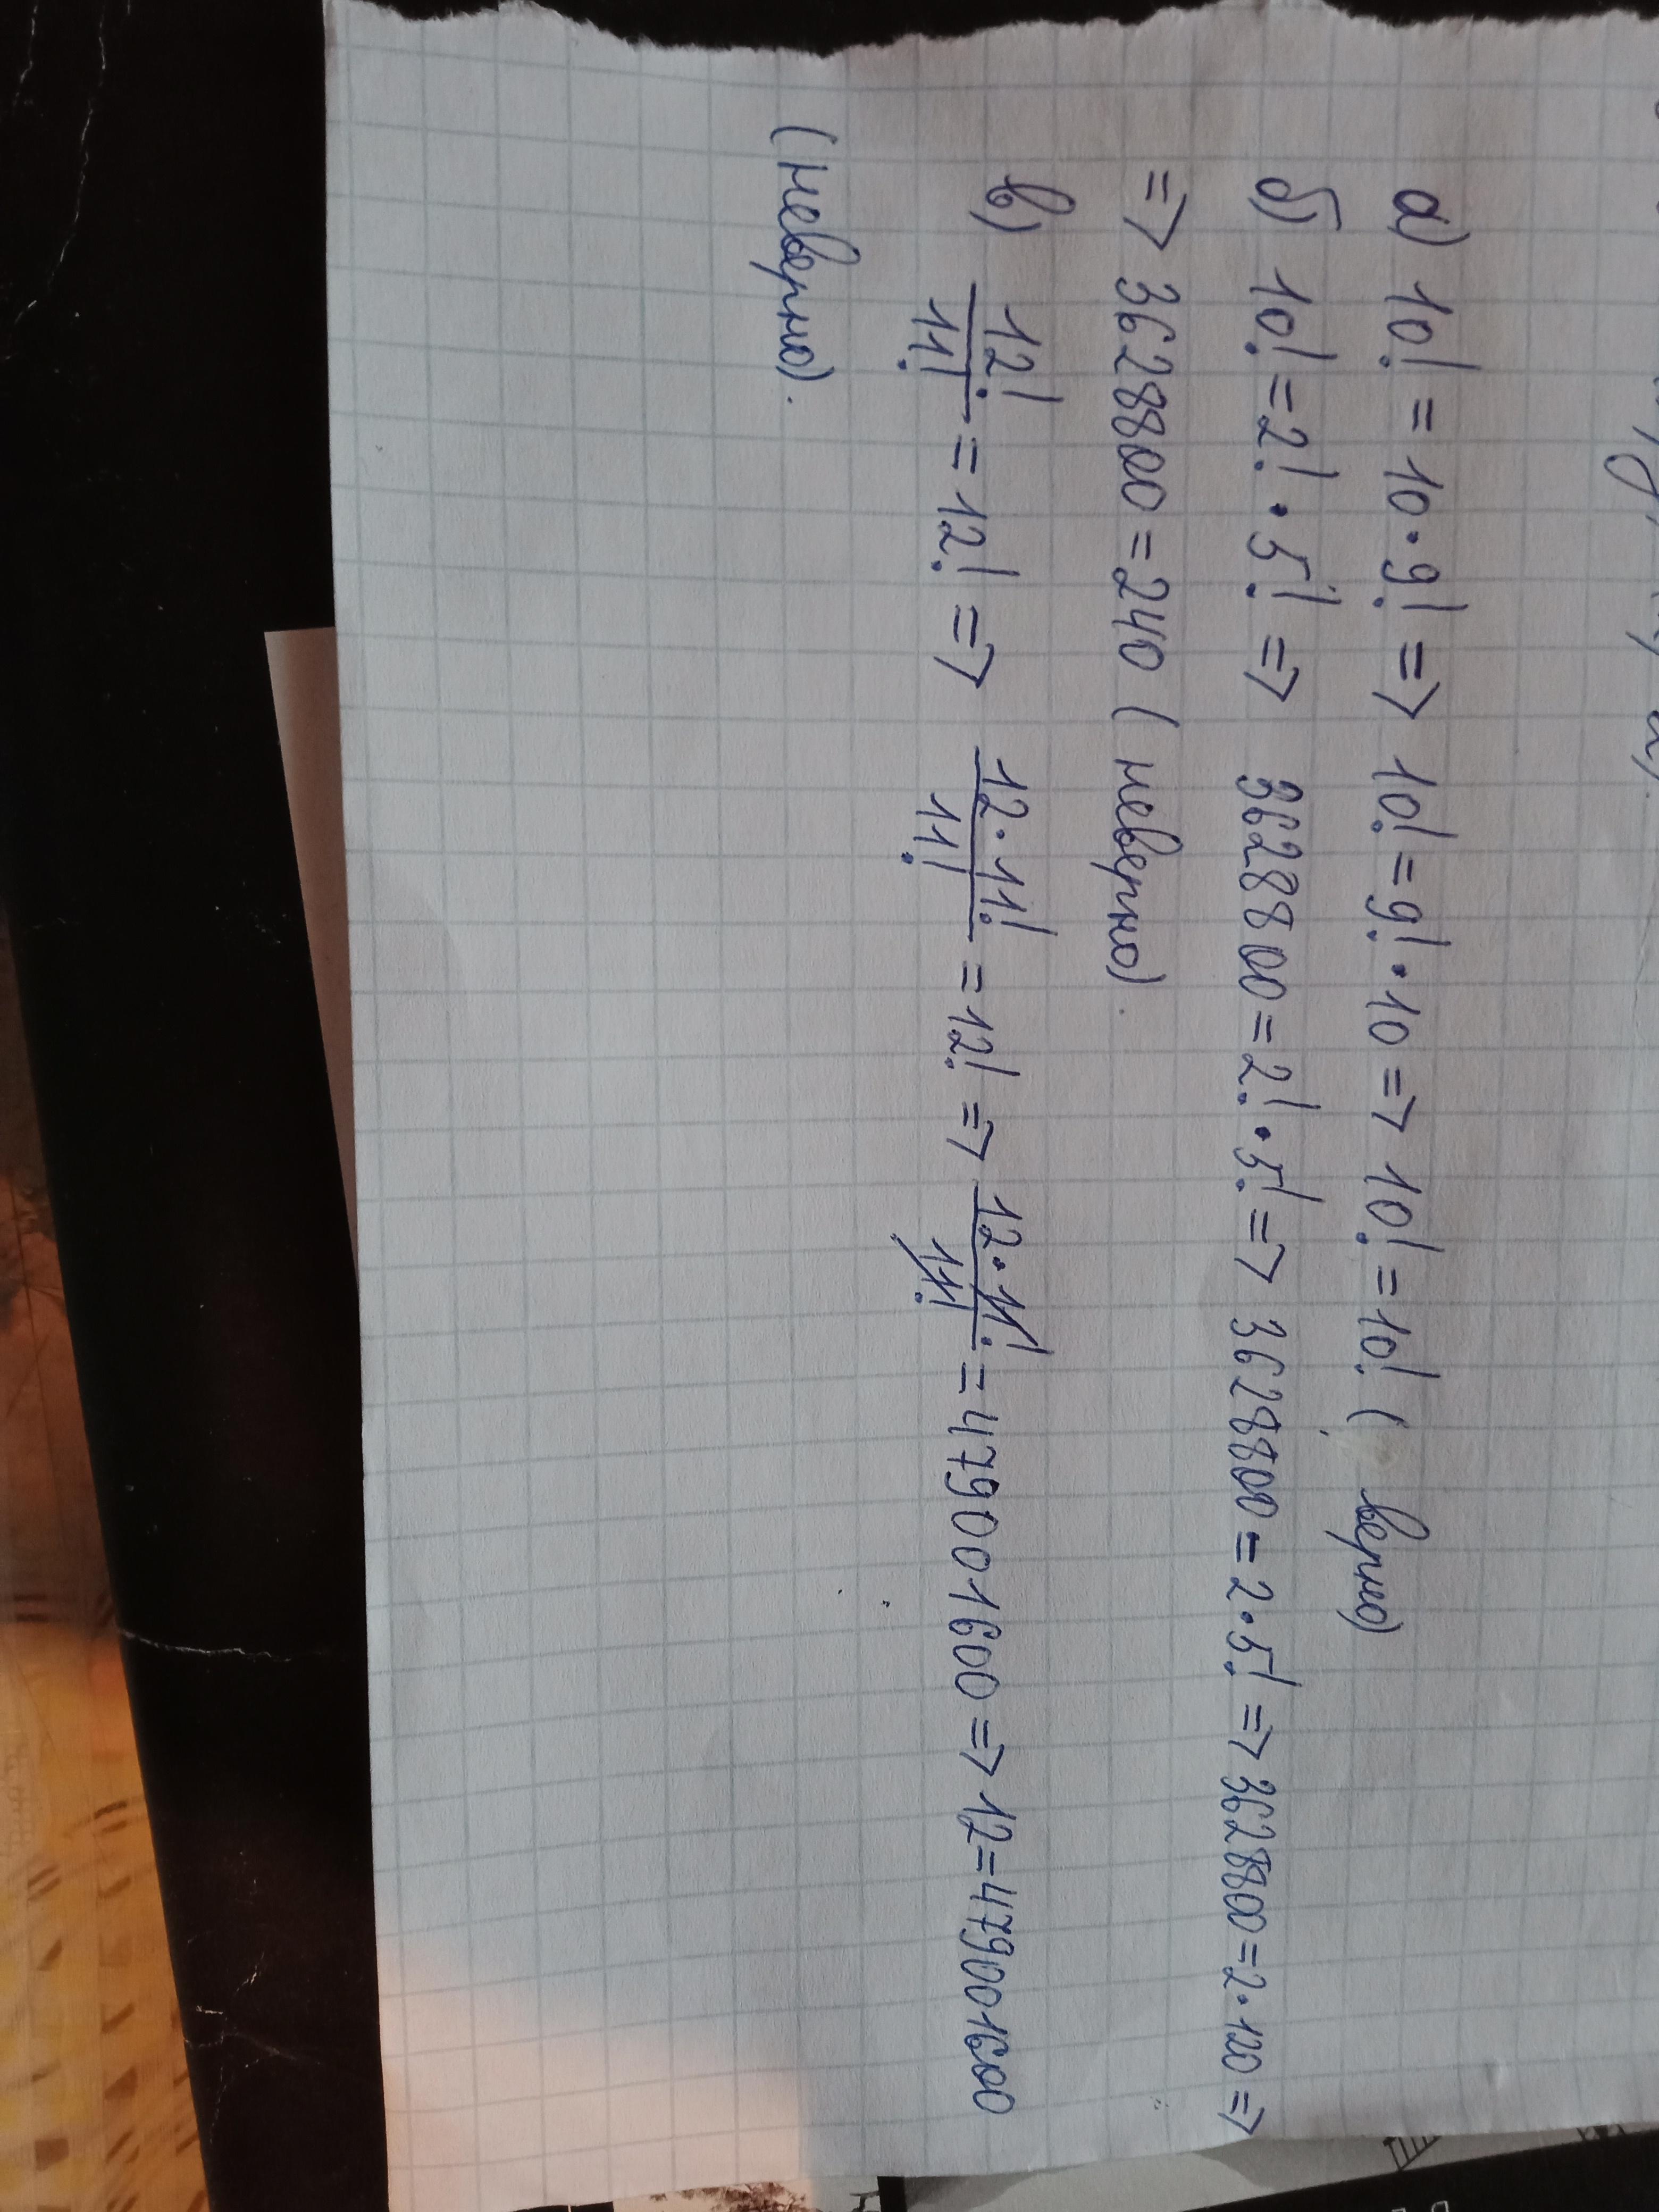 а) 10! = 10 · 9! => 10! = 9! · 10 => 10! = 10! ( верно)
б) 10! = 2! · 5! => 3628800 = 2! · 5! => 3628800 = 2 · 5! => 3628800 = 2 · 120 =>
=> 3628800 = 240 ( неверно).
в) 12!/11! = 12! => 12 · 11!/11! = 12! => 12 · 11!/11! = 479001600 => 12 = 479001600
(неверно).